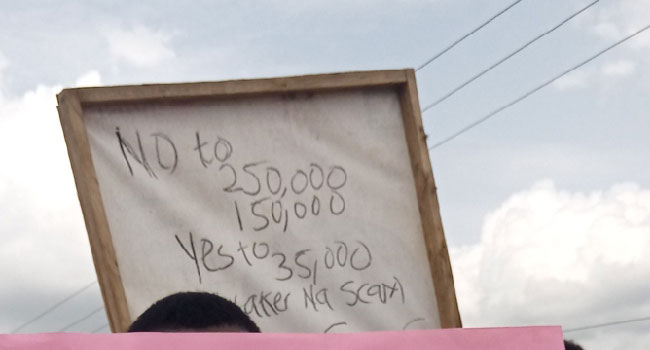 NO to
250,000
150,000
Yes to 35,000
Na Scam